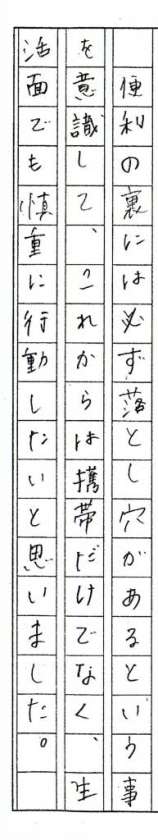 便利の裏には必ず落とし穴があるという事
を意識して、これからは携帯だけでなく、生
活面でも慎重に行動したいと思いました。